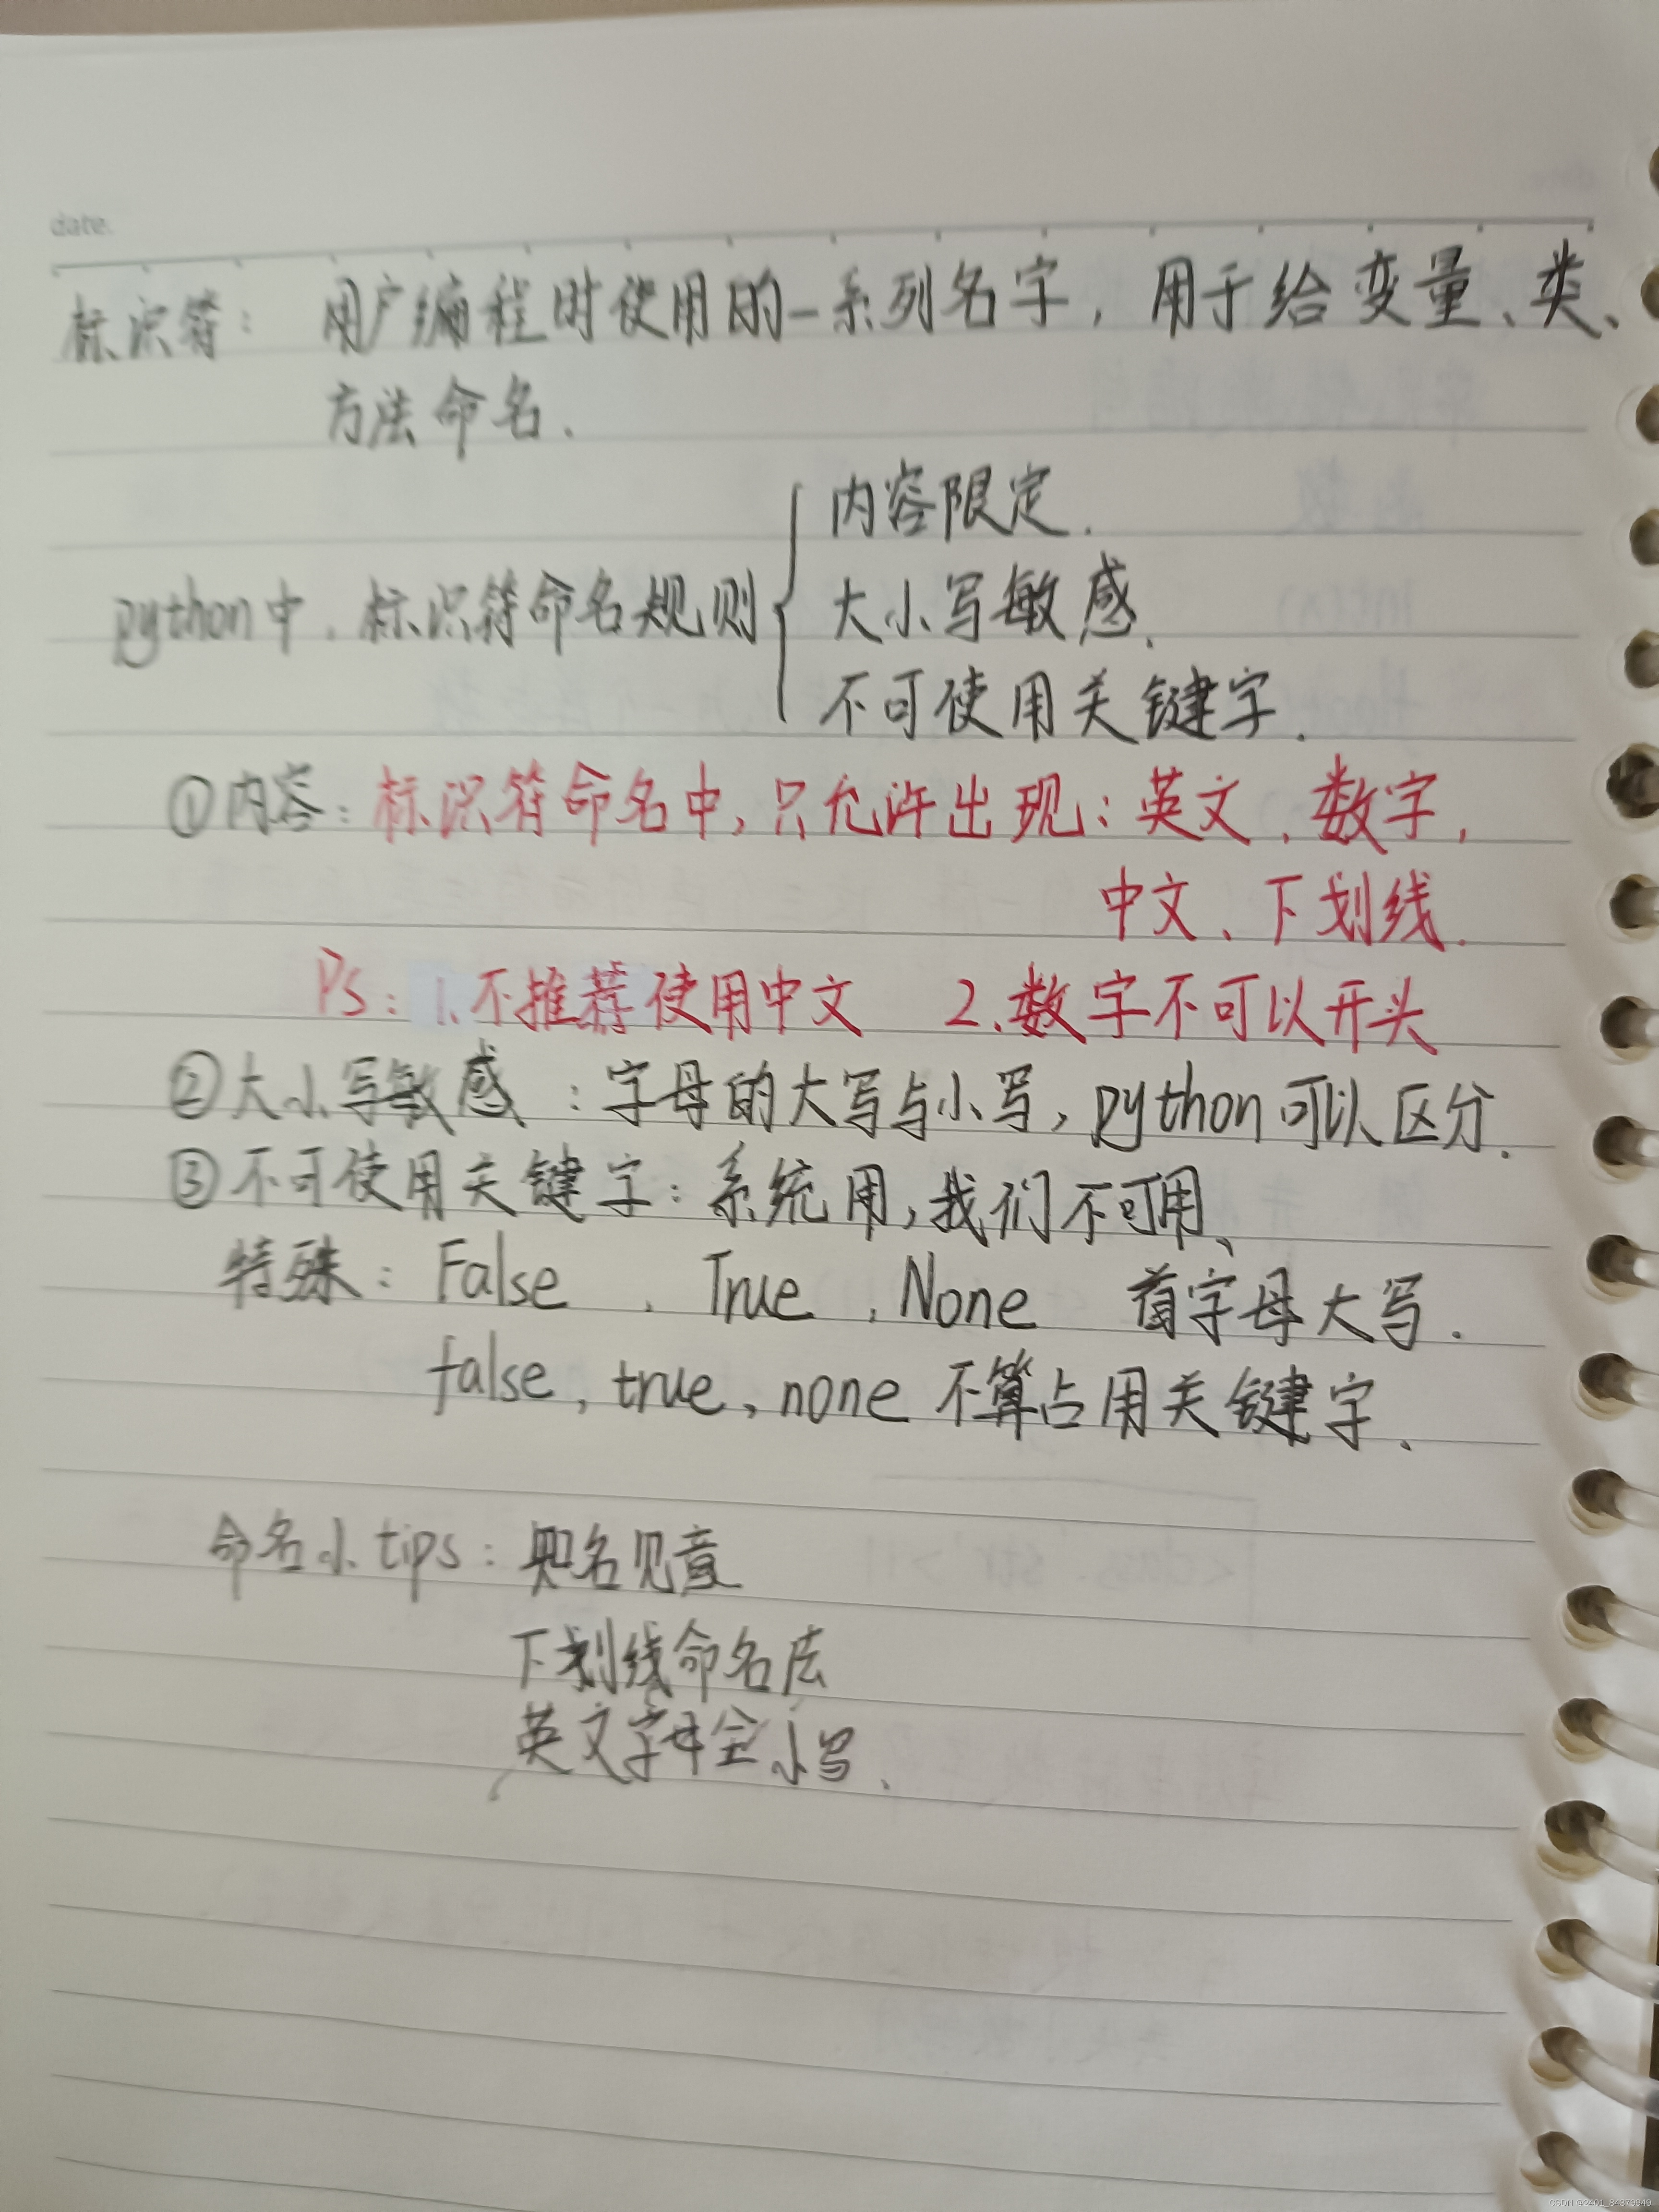 date.
标识符：用户编程时使用的一系列名字，用于给变量、类、
方法命名.
内容限定.
python中，标识符命名规则 大小写敏感.
不可使用关键字.
①内容：标识符命名中，只允许出现：英文、数字，
中文、下划线.
Ps：1.不推荐使用中文 2.数字不可以开头
②大小写敏感：字母的大写与小写，python可以区分.
③不可使用关键字：系统用，我们不可用、
特殊：False、True、None 首字母大写.
false，true，none 不算占用关键字、
命名小tips：见名见意
下划线命名法
英文字母全小写、
CSDN @2401_84379949